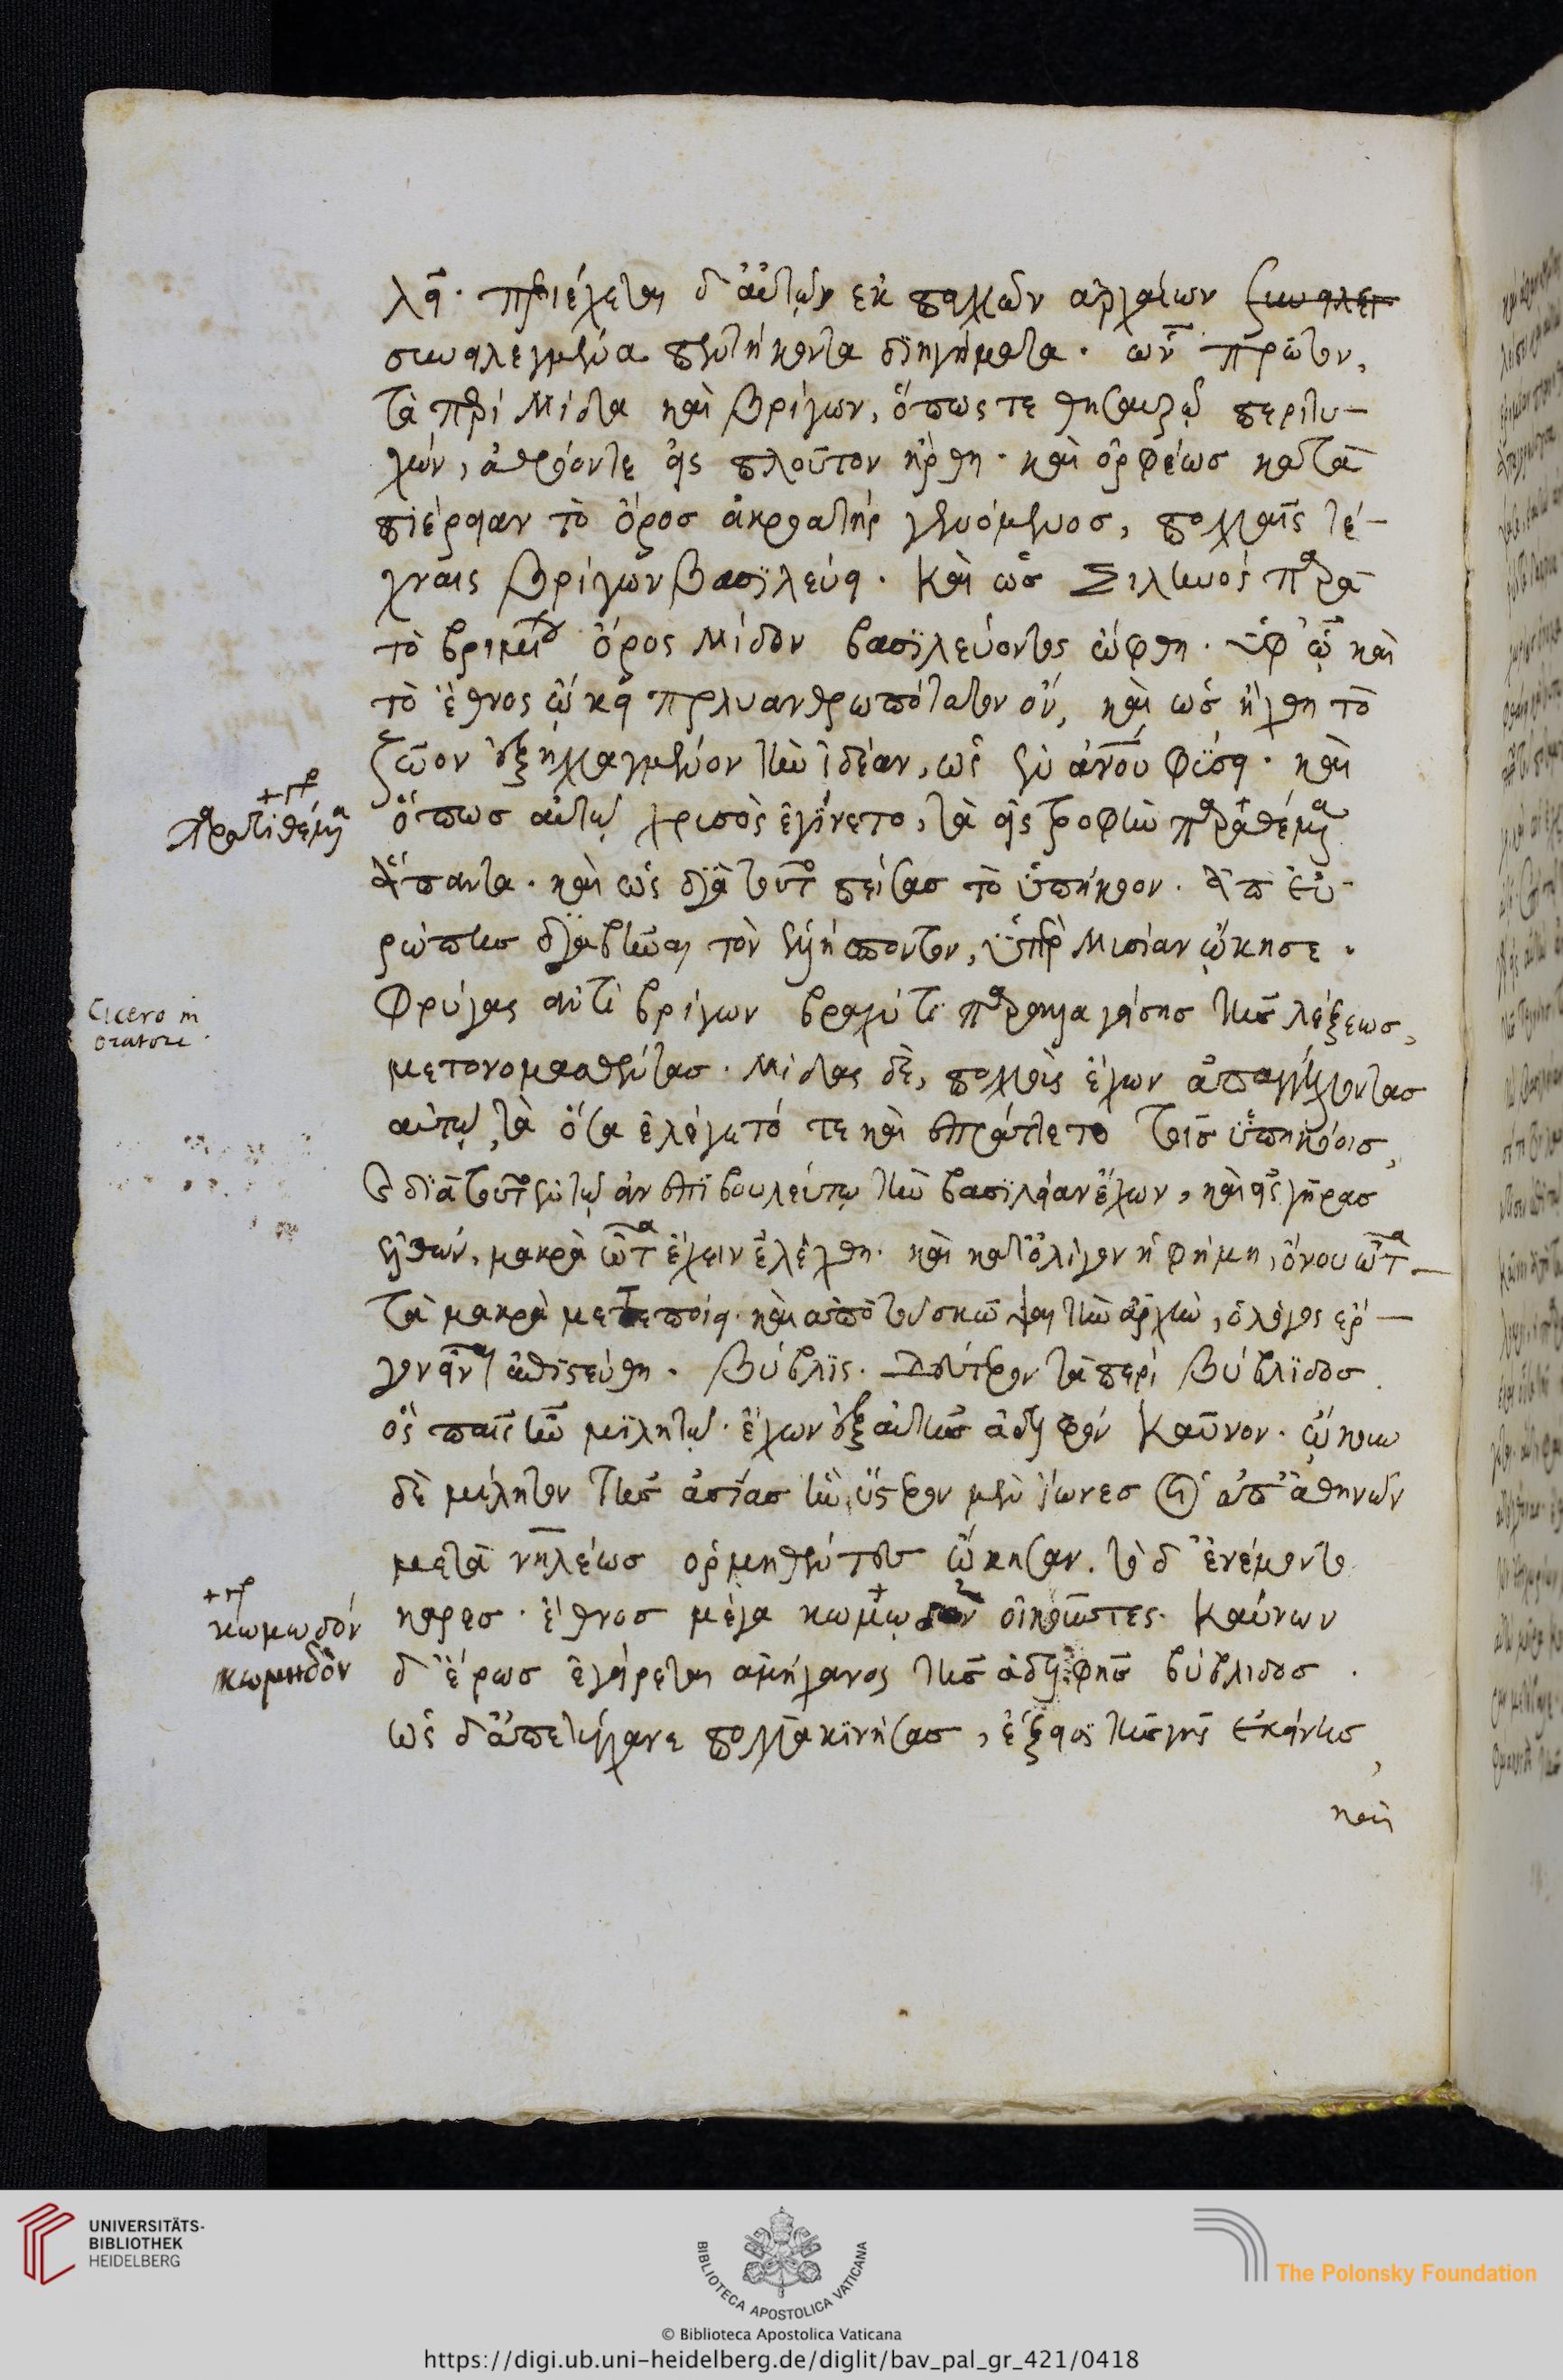 λει. περιέχεται δ' αὐτῶν ἐκ πολλῶν ἀρχαίων
συνειλεγμένα πεντήκοντα διηγήματα. ὧν πρῶτον,
τὰ περὶ Μίδα καὶ Βρίγων, ὅπως τε θησαυρῷ περιτυ-
χών, ἀθρόον τε εἰς πλοῦτον ἤρθη. καὶ ὀρφέωσ κατὰ
πιέρειαν τὸ ὄροσ ἀκροατὴς γενόμενοσ, πολλαῖς τέ-
χναις Βρίγων Βασιλεύει. Καὶ ὡσ Σιληνὸς παρὰ
τὸ βρίμιον ὄρος Μίδου βασιλεύοντος ὤφθη. ὑφ' ᾧ καὶ
τὸ ἔθνος ᾤκει πολυανθρωπότατον ὄν, καὶ ὡσ ἤχθη τὸ
ζῶον ἐξηλλαγμένον τὴν ἰδέαν, ὡς ἐν ἀνου φύσει. καὶ
ὅπωσ αὐτῷ χρυσὸς ἐγίνετο, τὰ εἰς τροφὴν παραθέμενα
ἅπαντα. καὶ ὡς διὰ τοῦτο πείσασ τὸ ὑπήκοον. ἀπ' εὐ-
ρώπησ διαβῆναι τὸν ἑλλήσποντον, ὑπὲρ Μυσίαν ᾤκησε.
Φρύγας ἀντὶ βρίγων βραχύ τι παραλλαγείσησ τῆσ λέξεωσ,
μετονομασθέντασ. Μίδας δὲ, πολλοὺς ἔχων ἀπαγγέλλοντασ
αὐτῷ, τὰ ὅσα ἐλέγετό τε καὶ ἐπράττετο τοῖσ ὑπηκόοισ,
διὰ τοῦτο ἐν τῷ ἀνεπιβουλεύτῳ τὴν βασιλείαν ἔχων, καὶ εἰς γῆρασ
ἐλθών, μακρὰ ὦτα ἔχειν ἐλέχθη. καὶ κατ' ὀλίγον ἡ φήμη, ὄνου ὦτα
τὰ μακρὰ μετεποίει. καὶ ἀπὸ τοῦ σκῶψαι τὴν ἀρχὴν, ὁ λόγος ἔρ-
γον εἶναι ἐπιστεύθη. Βύβλις. Δεύτερον τὰ περὶ Βύβλιδοσ.
ὃς παῖς ἦν μιλήτῳ. ἔχων ἐξ αὐτῆσ ἀδελφὸν Καῦνον. ᾤκουν
δὲ μίλητον τῆσ ἀσίασ ἣν, ὕστερον μὲν ἴωνεσ οἱ ἀπ' ἀθηνῶν
μετὰ νηλέωσ ὁρμηθέντεσ ᾤκησαν. τότε δ' ἐνέμοντο
καρεσ. ἔθνοσ μέγα κωμωδὸν οἰκοῦντες. Καύνων
δ' ἔρωσ ἐγείρεται ἀμήχανος τῆσ ἀδελφῆσ βύβλιδοσ.
ὡς δ' ἀπετύγχανε πολλὰ κινήσασ, ἔξεισι τῆς γῆς ἐκείνησ,
καὶ
Cicero in
oratore.
κωμωδόν
κωμηδὸν
UNIVERSITÄTS-
BIBLIOTHEK
HEIDELBERG
BIBLIOTECA APOSTOLICA VATICANA
The Polonsky Foundation
© Biblioteca Apostolica Vaticana
https://digi.ub.uni-heidelberg.de/diglit/bav_pal_gr_421/0418